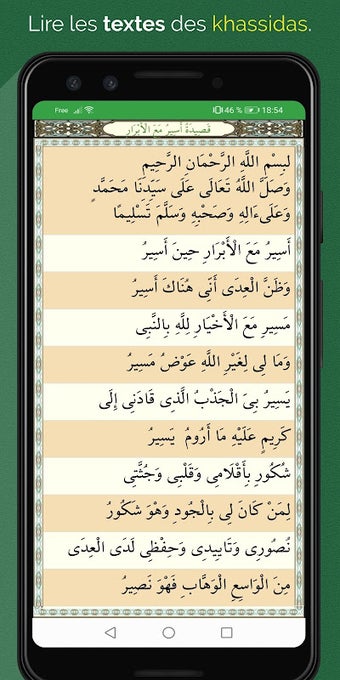 Lire les textes des khassidas.
Free 46 % 18:54
قَصِيدَةُ أَسِيرُ مَعَ الْأَبْرَارِ
لبِسْمِ اللَّهِ الرَّحْمَانِ الرَّحِيمِ
وَصَلَّ اللَّهُ تَعَالَى عَلَى سَيِّدِنَا مَحَمَّدٍ
وَعَلَىءَالِهِ وَصَحْبِهِ وَسَلَّمَ تَسْلِيمًا
أَسِيرُ مَعَ الْأَبْرَارِ حِينَ أَسِيرُ
وَظَنَّ الْعِدَى أَنِّى هُنَاكَ أَسِيرُ
مَسِيرِ مَعَ الْأَخْيَارِ لِلَّهِ بِالنَّبِى
وَمَا لِى لِغَيْرِ اللَّهِ عَوْضُ مَسِيرُ
يَسِيرُ بِىَ الْجَذْبُ الَّذِى قَادَنِى إِلَى
كَرِيمٍ عَلَيْهِ مَا أَرُومُ يَسِيرُ
شُكُورِ بِأَقْلَامِى وَقَلْبِى وَجُثَّتِى
لِمَنْ كَانَ لِى بِالْجُودِ وَهْوَ شَكُورُ
نُصُورِى وَتَابِيدِى وَحِفْظِى لَدَى الْعِدَى
مِنَ الْوَاسِعِ الْوَهَّابِ فَهْوَ نَصِيرُ